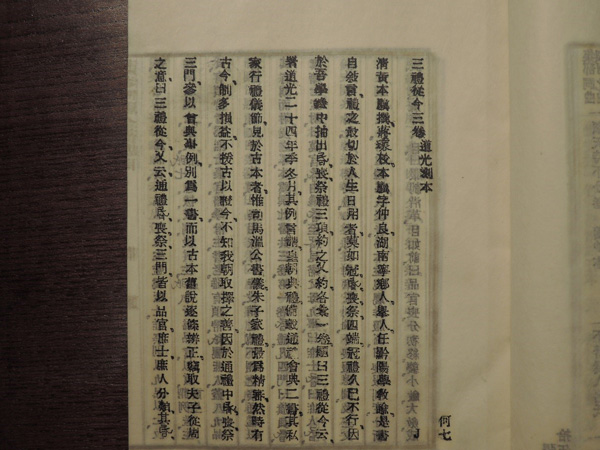 三禮從今三卷 道光刻本
清黃本驥撰蔣瓌校本驥字仲良湖南寧鄉人舉人任黔陽學教諭是書
自敘言禮之最切於人生日用者莫如冠昏喪祭四端冠禮久已不行因
於吾學錄中抽出昏喪祭禮三項約之又約各為一卷題曰三禮從今云
署道光二十四年季冬月其例言謂皇朝典禮備載通禮會典二書其私
家行禮儀節見於古本者惟司馬溫公書儀朱子家禮最為精審然時有
古今制多損益不援古以証今不知我朝取擇之善因於通禮中昏喪祭
三門參以會典事例別為一書而以古本舊說逐條辨正竊取夫子從周
之意曰三禮從今又云通禮昏喪祭三門者以品官庶士庶人分類其昏
何七